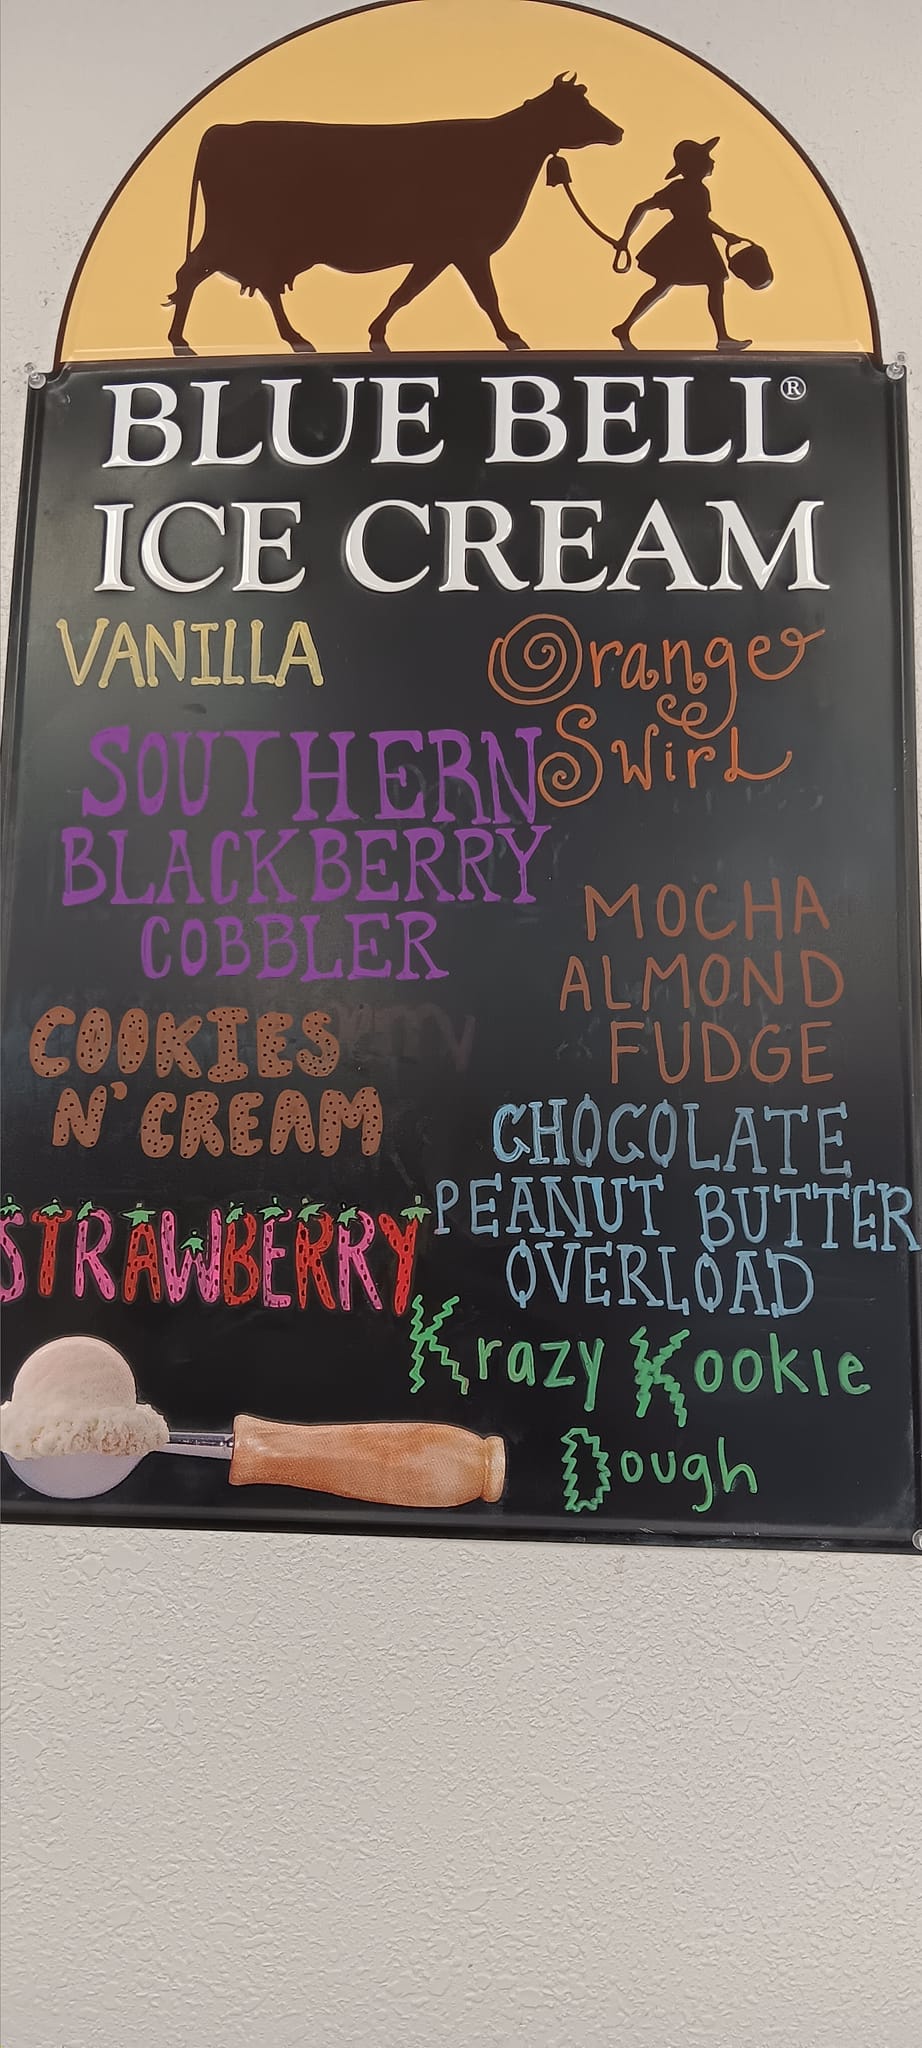 BLUE BELL®
ICE CREAM
VANILLA
SOUTHERN
BLACKBERRY
COBBLER
COOKIES
N' CREAM
STRAWBERRY
Orange
Swirl
MOCHA
ALMOND
FUDGE
CHOCOLATE
PEANUT BUTTER
OVERLOAD
Krazy Kookie
Dough